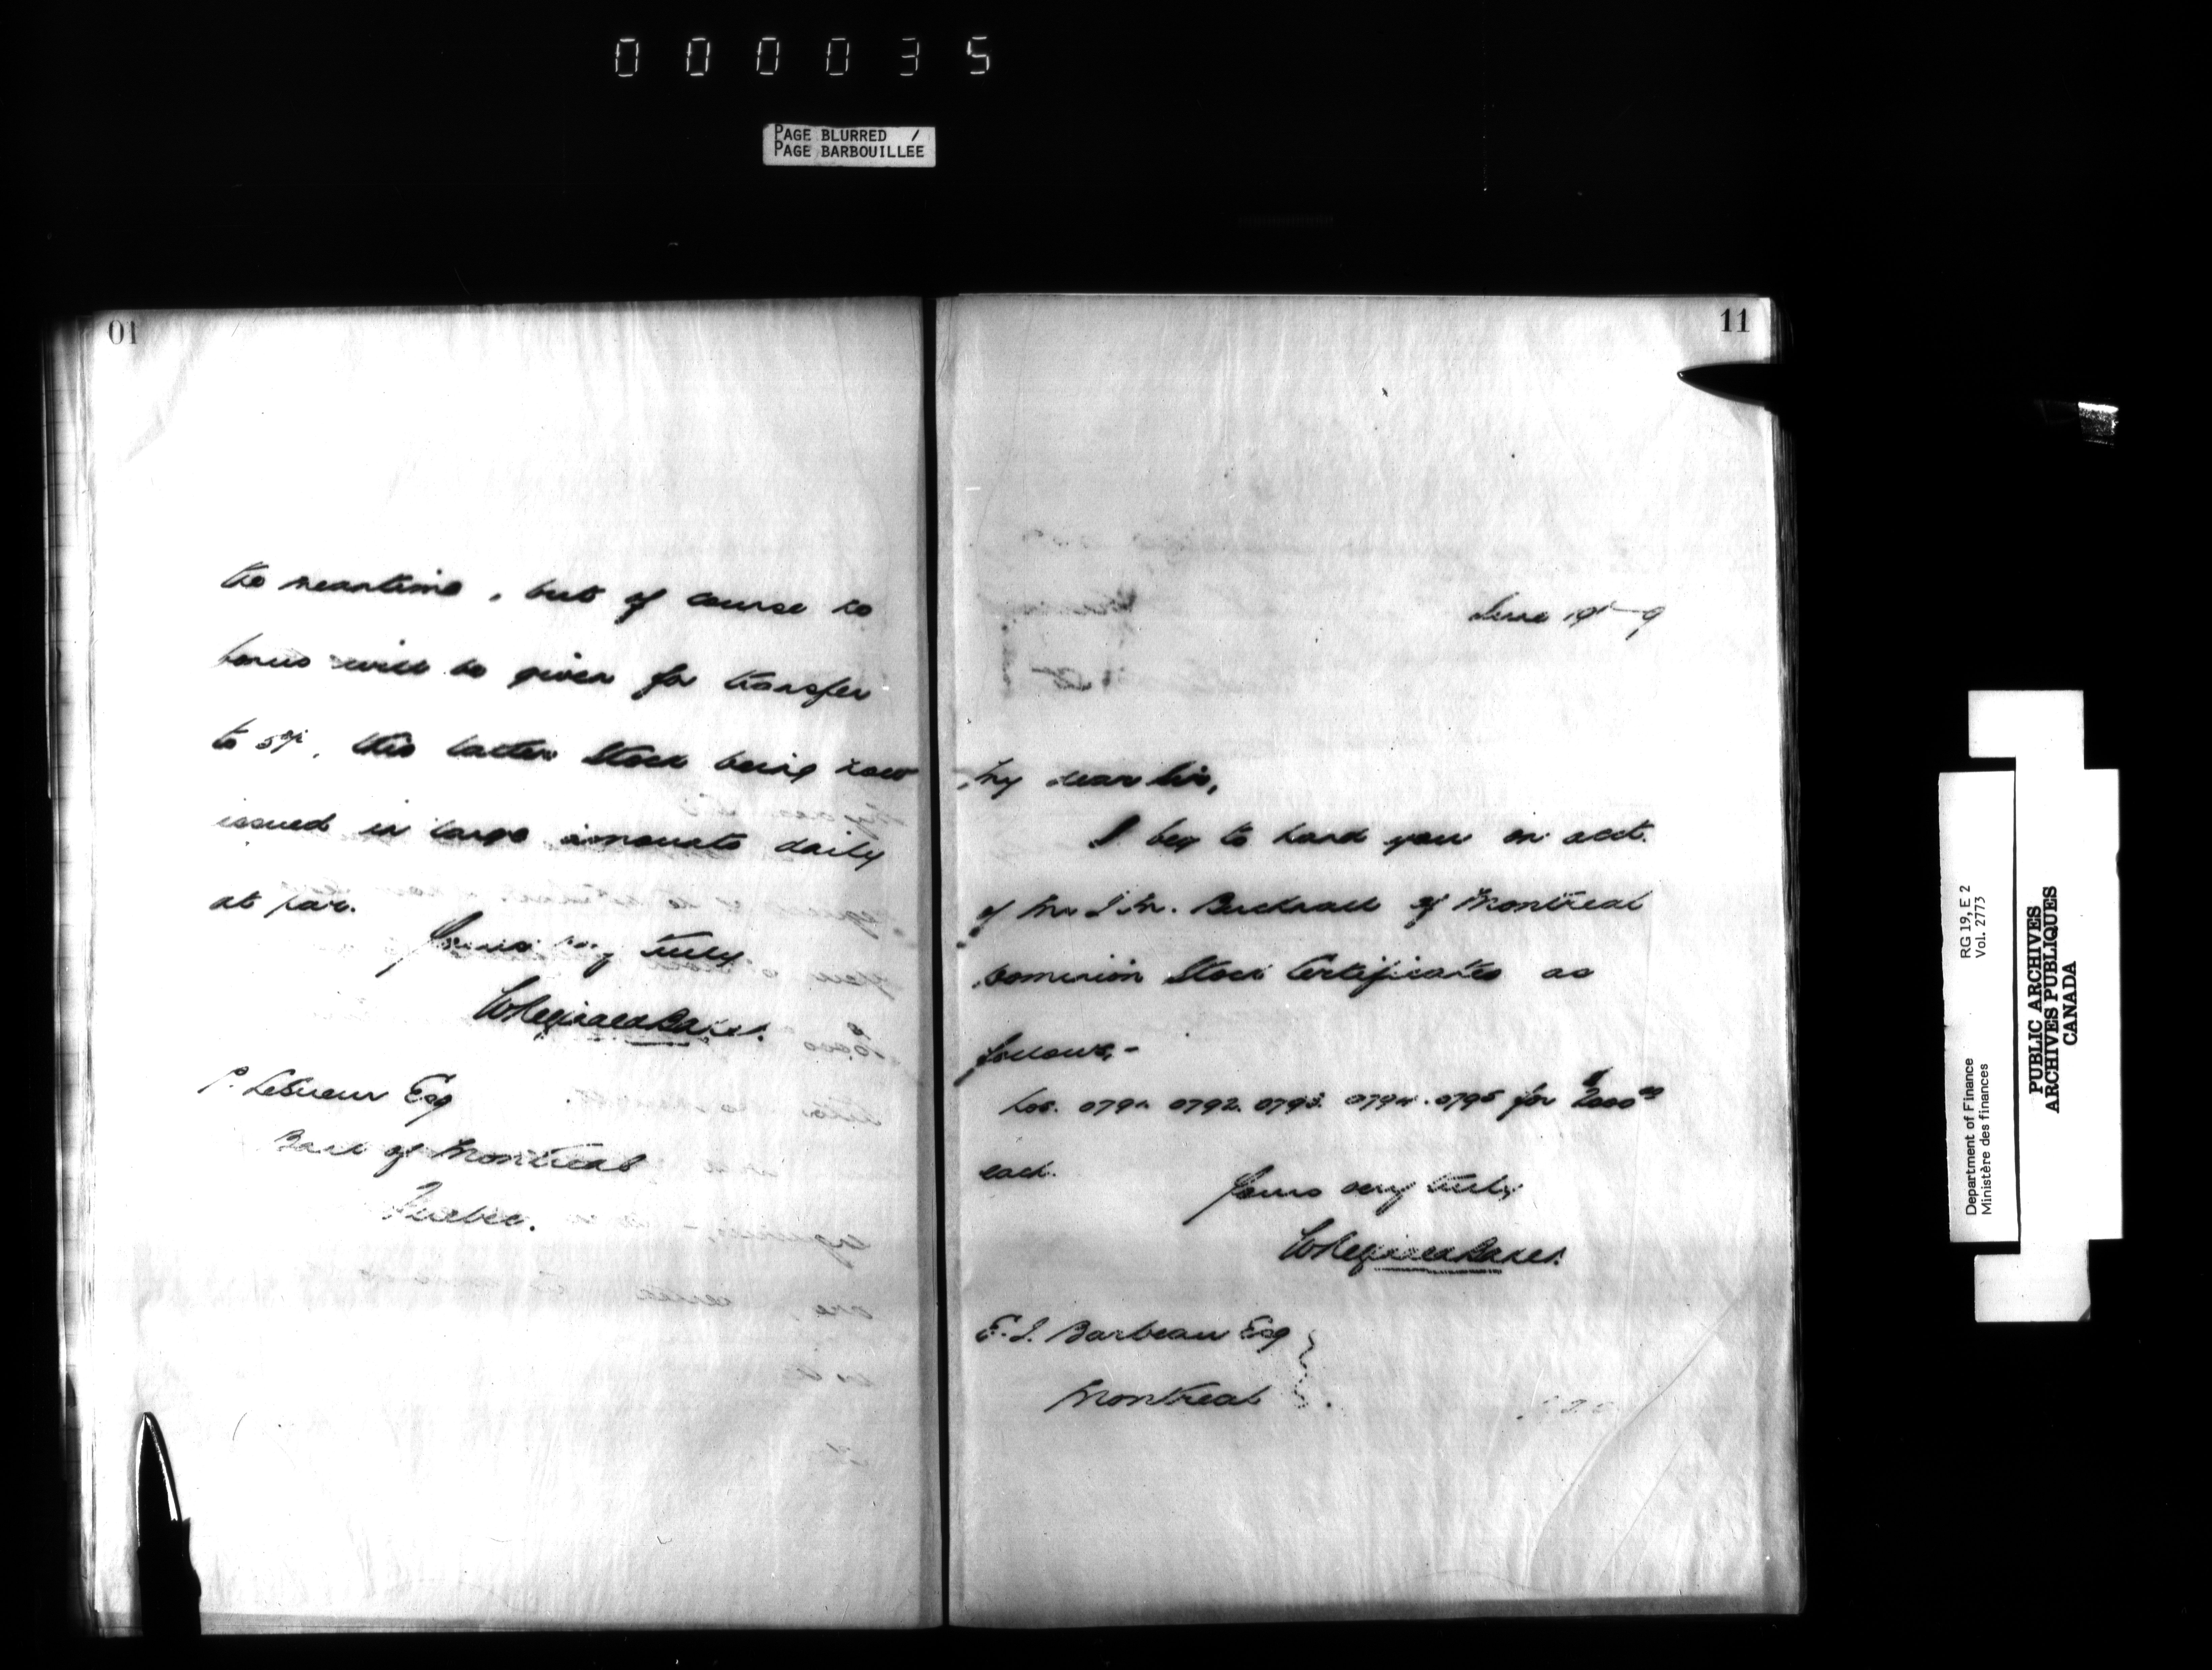 000035
PAGE BLURRED /
PAGE BARBOUILLEE
10
the meantime, but of course no
bonus will be given for transfer
to 5%, this latter Stock being now
issued in large amounts daily
at par.
Yours very truly
W Reginald Baker.
P. LeSueur Esq
Bank of Montreal
Quebec.
11
June 19th 9
My dear Sir,
I beg to hand you on acct.
of Mr J. M. of Montreal
Dominion Stock Certificates as
follows,-
Nos. 0791. 0792. 0793. 0794. 0795 for $2000.00
each.
Yours very truly
W Reginald Baker.
E. J. Barbeau Esq
Montreal
Department of Finance
Ministère des finances
RG 19, E 2
Vol. 2773
PUBLIC ARCHIVES
ARCHIVES PUBLIQUES
CANADA